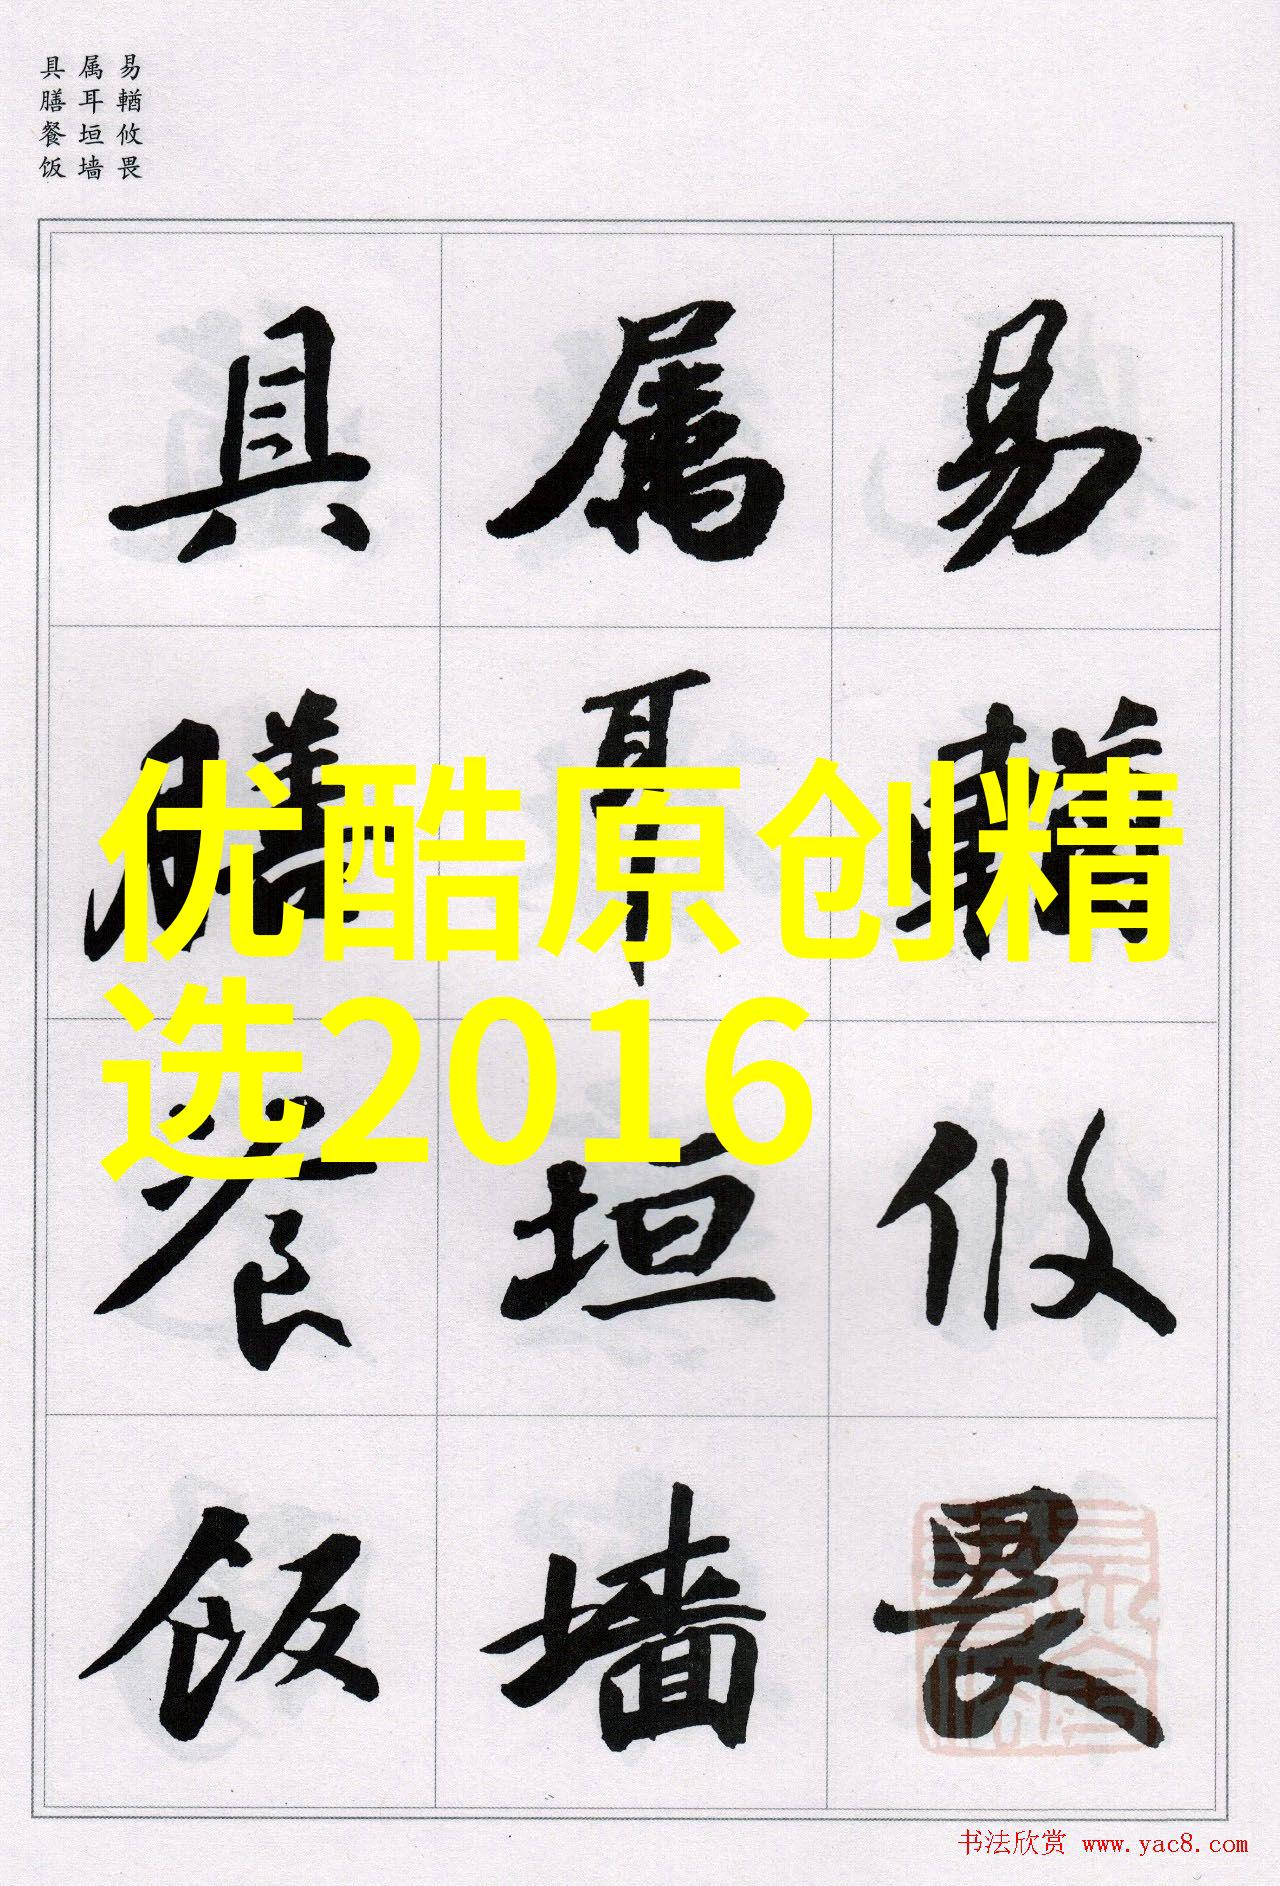 易輶攸畏
属耳垣墙
具膳餐饭
易輶攸畏
属耳垣墙
具膳餐饭
优酷原创精
选2016
书法欣赏 www.yac8.com